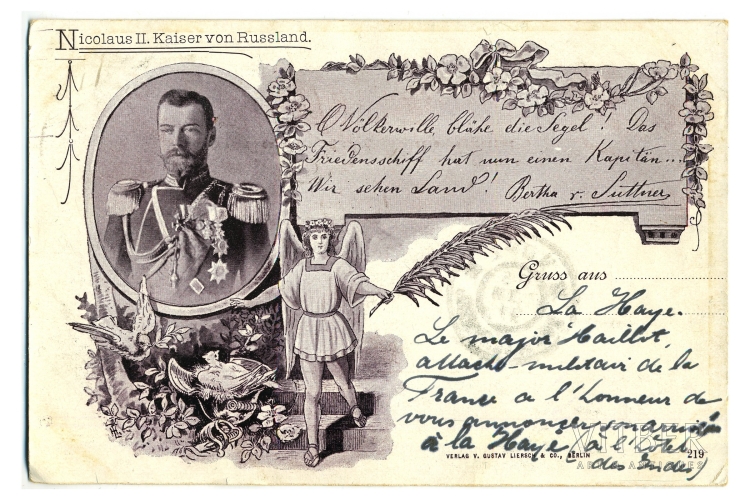 Nicolaus II. Kaiser von Russland.
O Völkerwille, blähe die Segel! Das
Friedensschiff hat nun einen Kapitän...
Wir sehen Land! Bertha v. Suttner
Gruss aus
La Haye.
Le major Haillot,
attaché militair de la
France a l'honneur de
vous annoncer son arrivée
à la Haye (à l'hotel
des Indes)
VERLAG V. GUSTAV LIERSCH & CO., BERLIN
219